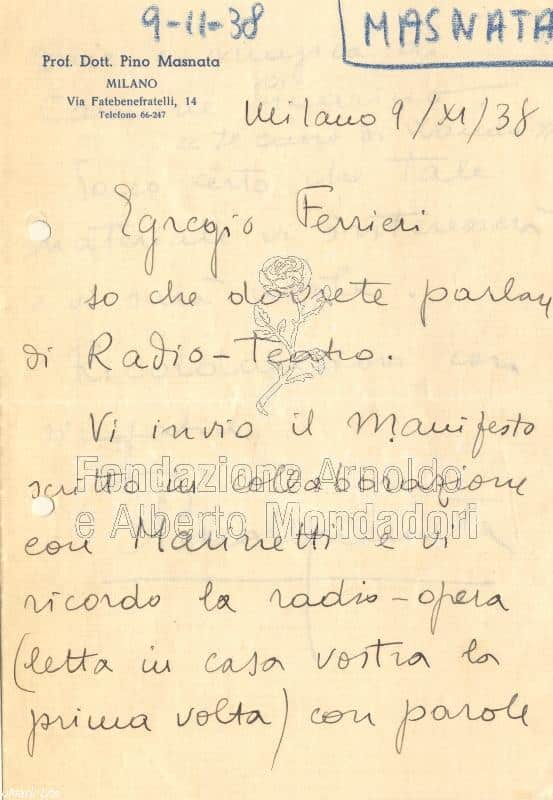 9-11-38
MASNATA
Prof. Dott. Pino Masnata
MILANO
Via Fatebenefratelli, 14
Telefono 66-247
Milano 9/XI/38
Egregio Ferrieri
so che dovrete parlar
di Radio-Teatro.
Vi invio il Manifesto
scritto in collaborazione
con Marinetti e vi
ricordo la radio-opera
(letta in casa vostra la
prima volta) con parole
Fondazione Arnoldo
e Alberto Mondadori